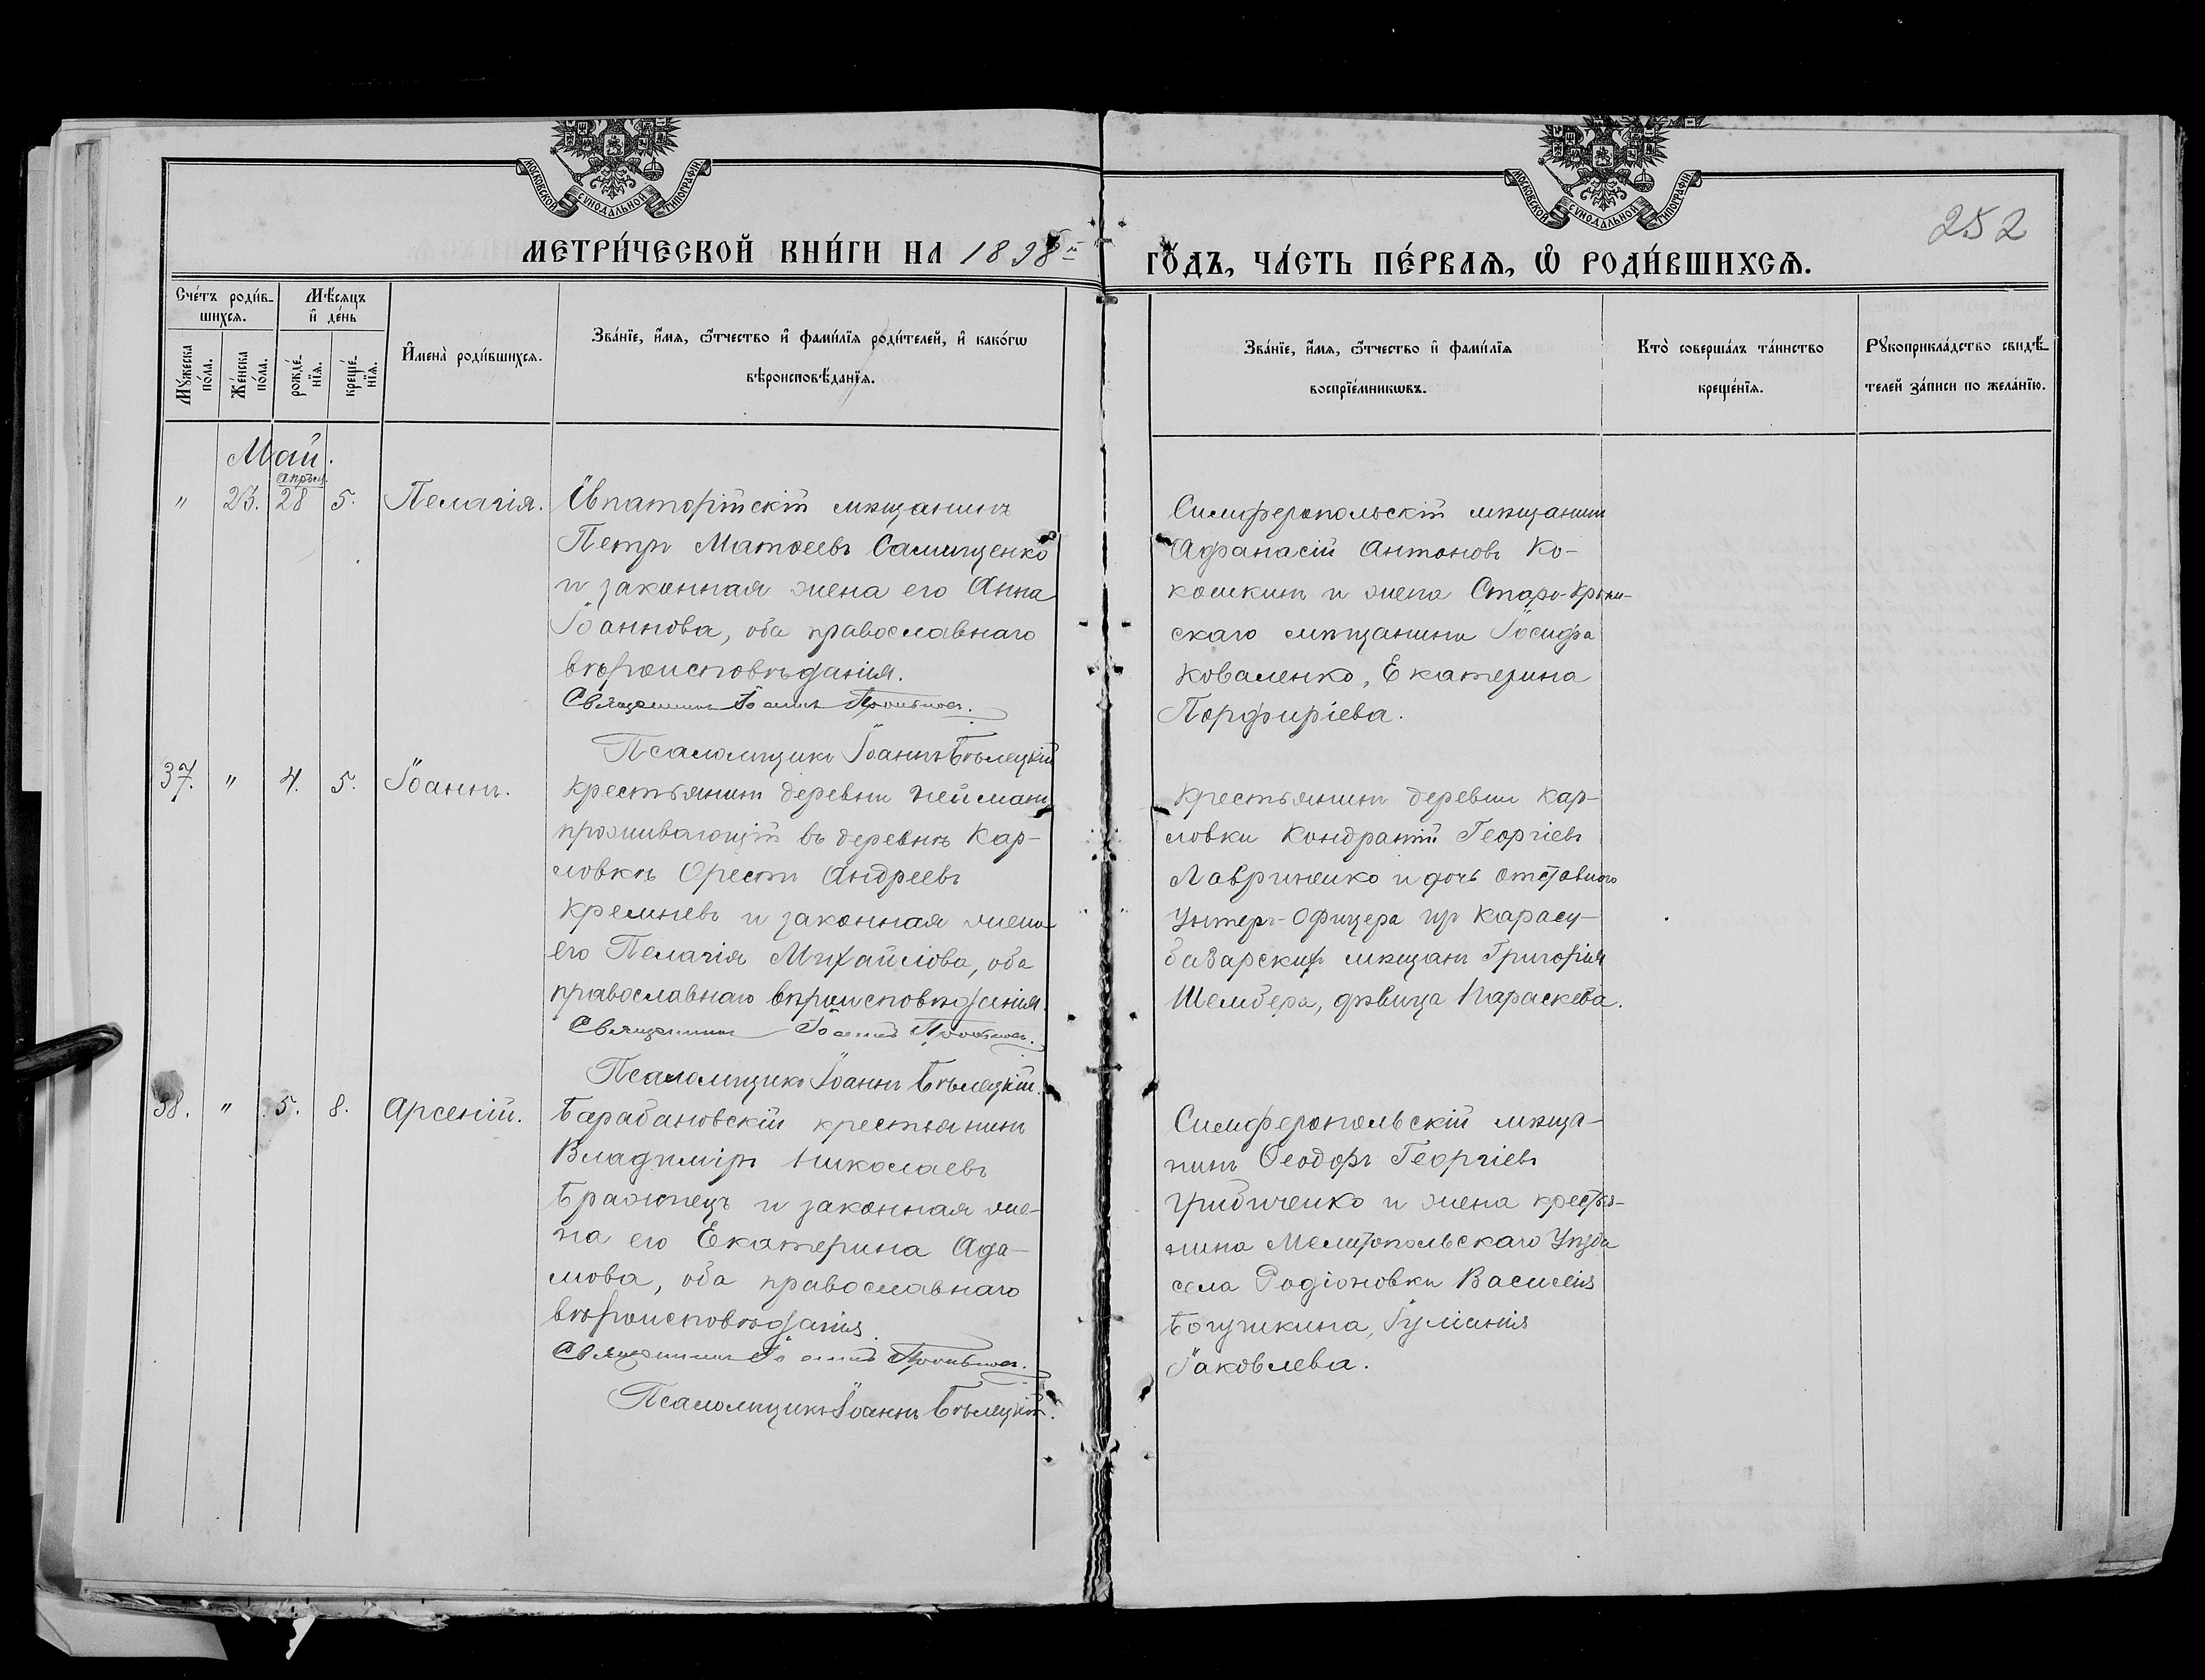 МОСКОВСКОЙ СѴНОДАЛЬНОЙ ТИПОГРАФІИ
МОСКОВСКОЙ СѴНОДАЛЬНОЙ ТИПОГРАФІИ
252
МЕТРИ́ЧЕСКОЙ КНИ́ГИ НА 1898й
ГО́ДЪ, ЧА́СТЬ ПЕ́РВАѦ, Ѡ҆ РОДИ́ВШИХСѦ.
Сче́тъ роди́в-
шихсѧ.
Мѣ́сѧцъ
и҆ де́нь
Мꙋ́жеска
по́ла.
Же́нска
по́ла.
рожде́-
нїѧ.
креще́-
нїѧ.
И҆мена̀ роди́вшихсѧ.
Зва́нїе, и҆́мѧ, ѻ҆́тчество и҆ фами́лїѧ роди́телей, и҆ како́гѡ
вѣроисповѣ́данїѧ.
Зва́нїе, и҆́мѧ, ѻ҆́тчество и҆ фами́лїѧ
воспрїе́мникѡвъ.
Кто̀ соверша́лъ та́инство
креще́нїѧ.
Рꙋкоприкла́дство свидѣ́-
телей за́писи по жела́нїю.
Май.
апрѣл.
" 23. 28 5. Пелагія.
Евпаторійскій мѣщанинъ
Петръ Матѳеевъ Самищенко
и законная жена его Анна
Іоаннова, оба православнаго
вѣроисповѣданія.
Священникъ Іоаннъ
Псаломщикъ Іоаннъ Бѣлецкій
Симферопольскій мѣщанинъ
Афанасій Антоновъ Ко-
кошкинъ и жена Старо-Крым-
скаго мѣщанина Іосифа
Коваленко, Екатерина
Порфиріева.
37. " 4. 5. Іоаннъ.
Крестьянинъ деревни Нейманъ
проживающій въ деревнѣ Кар-
ловкѣ Орестъ Андреевъ
Кремневъ и законная жена
его Пелагія Михайлова, оба
православнаго вѣроисповѣданія.
Священникъ Іоаннъ
Псаломщикъ Іоаннъ Бѣлецкій.
Крестьянинъ деревни Кар-
ловки Кондратій Георгіевъ
Лавриненко и дочь отставного
Унтеръ-Офицера изъ Карасу-
базарскихъ мѣщанъ Григорія
Шембера, дѣвица Параскева.
38. " 5. 8. Арсеній.
Барабановскій крестьянинъ
Владиміръ Николаевъ
Бражнецъ и законная же-
на его Екатерина Ада-
мова, оба православнаго
вѣроисповѣданія.
Священникъ Іоаннъ
Псаломщикъ Іоаннъ Бѣлецкій.
Симферопольскій мѣща-
нинъ Ѳеодоръ Георгіевъ
Грибиченко и жена крестья-
нина Мелитопольскаго Уѣзда
села Родіоновки Василія
Богучкина, Іуліанія
Іаковлева.